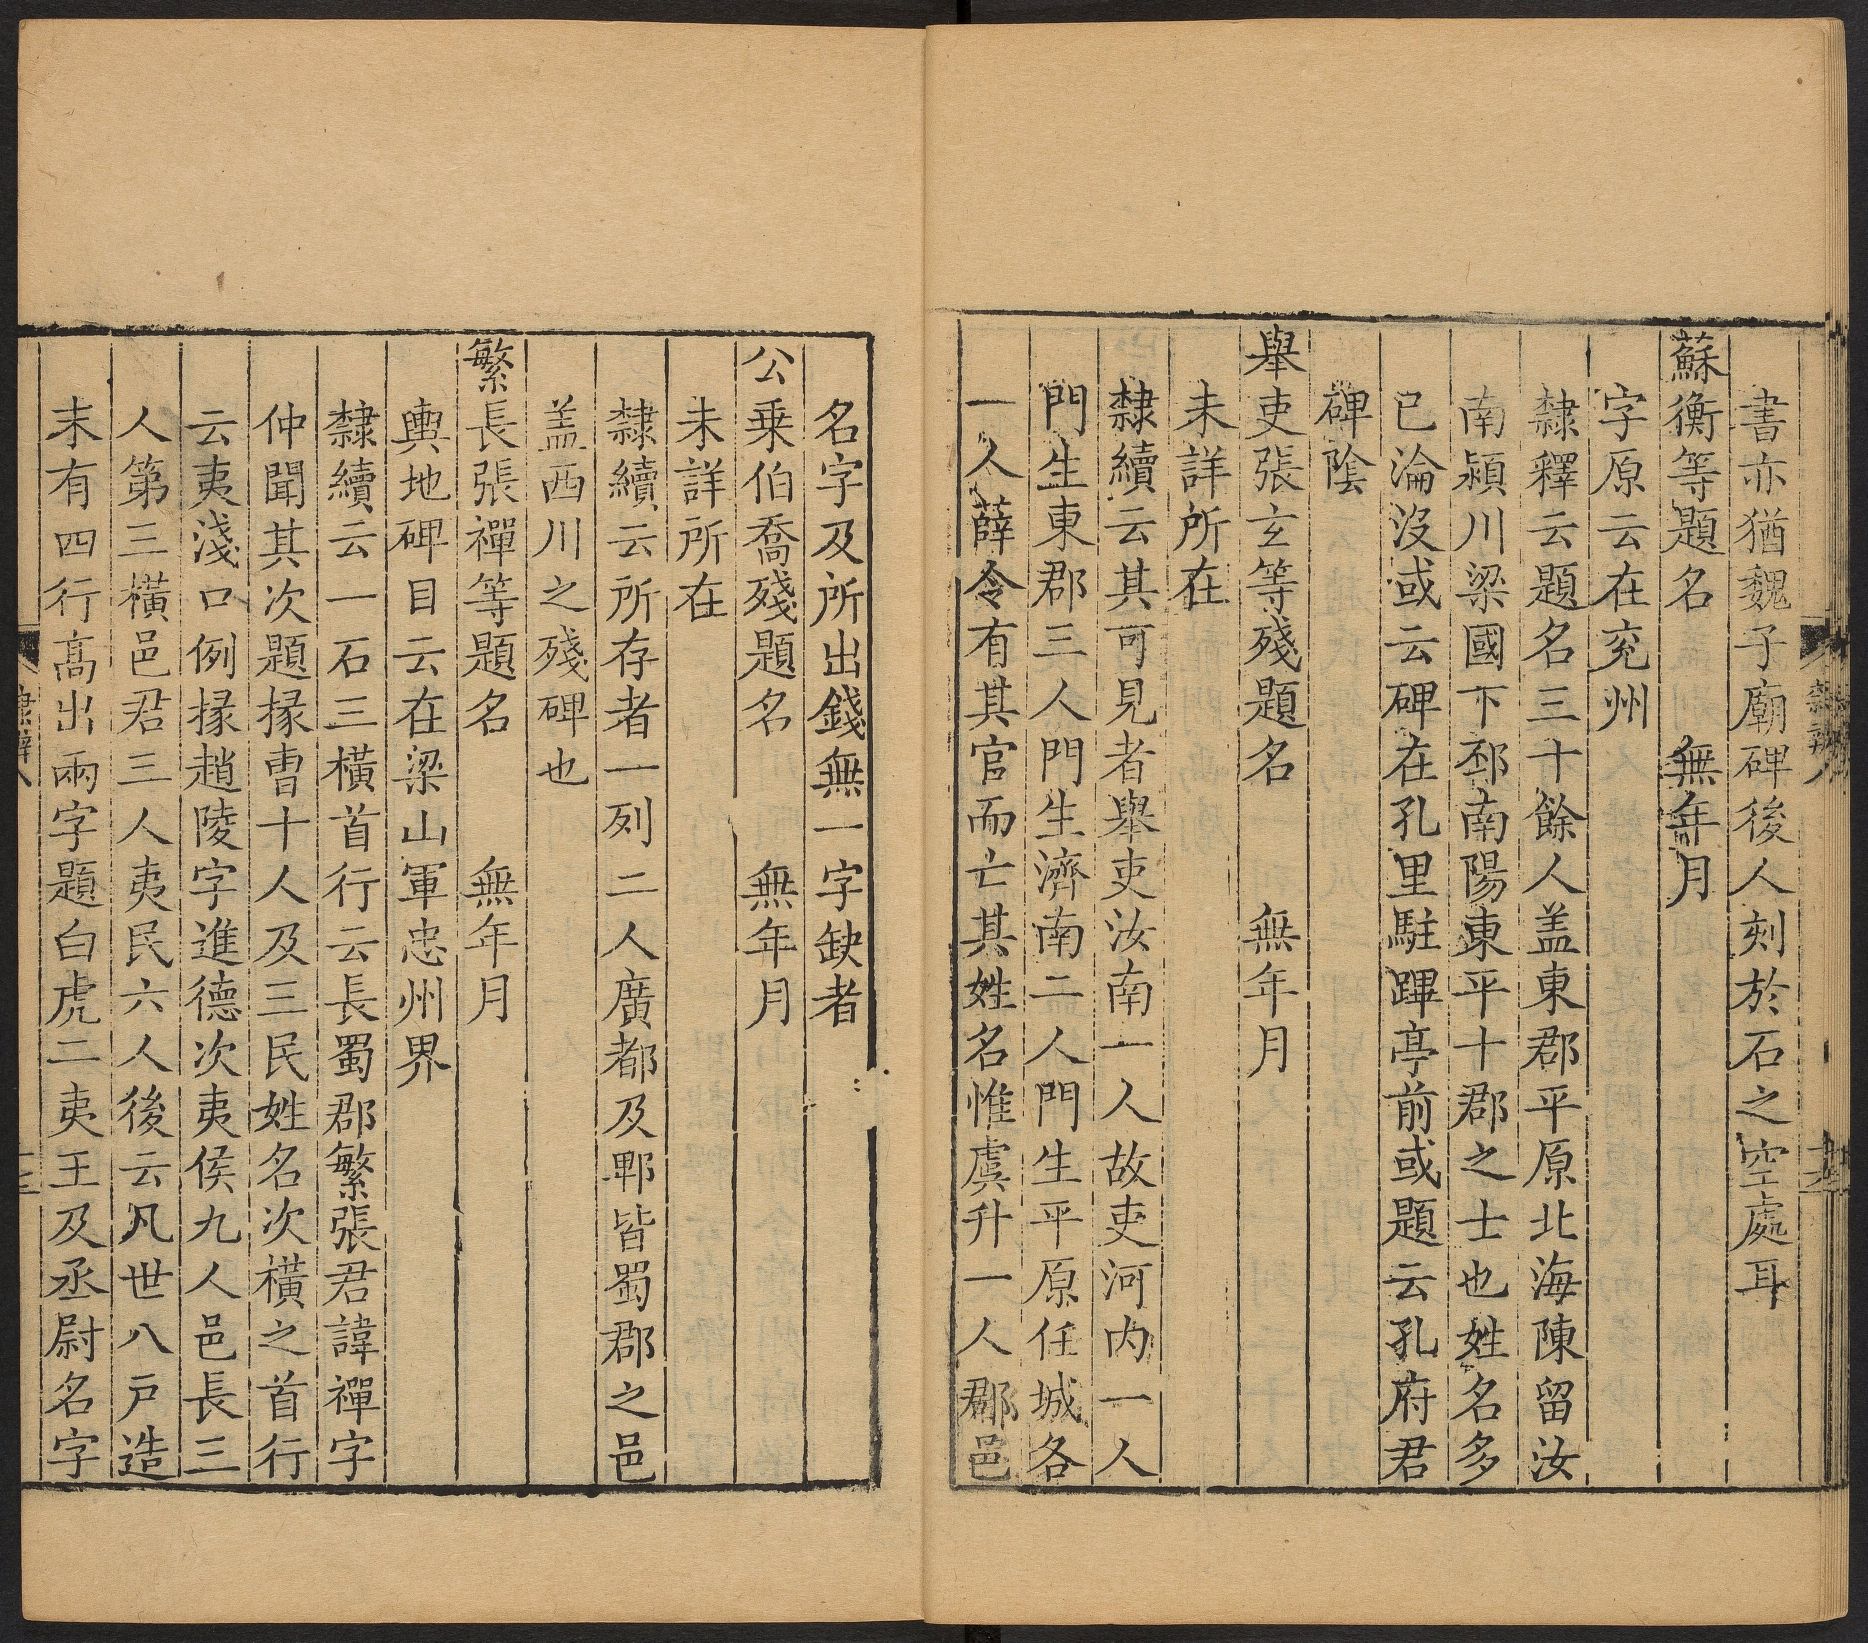 書亦猶魏子廟碑後人刻於石之空處耳
蘇衡等題名 無年月
字原云在兖州
隸釋云題名三十餘人盖東郡平原北海陳留汝
南潁川梁國下邳南陽東平十郡之士也姓名多
已淪没或云碑在孔里駐蹕亭前或題云孔府君
碑陰
舉吏張玄等殘題名 無年月
未詳所在
隸續云其可見者舉吏汝南一人故吏河内一人
門生東郡三人門生濟南二人門生平原任城各
一人薛令有其官而亡其姓名惟虞升一人郡邑
名字及所出錢無一字缺者
公乘伯喬殘題名 無年月
未詳所在
隸續云所存者一列二人廣都及郫皆蜀郡之邑
盖西川之殘碑也
繁長張禪等題名 無年月
輿地碑目云在梁山軍忠州界
隸續云一石三橫首行云長蜀郡繁張君諱禪字
仲聞其次題掾曹十人及三民姓名次橫之首行
云夷淺口例掾趙陵字進德次夷侯九人邑長三
人第三橫邑君三人夷民六人後云凡世八戸造
末有四行高出兩字題白虎二夷王及丞尉名字